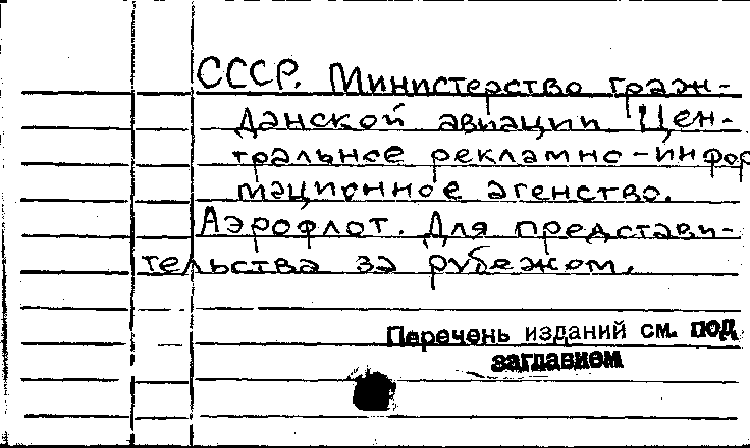 СССР. Министерство граж-
данской авиации. Цен-
тральное рекламно-инфор
мационное агенство.
Аэрофлот. Для представи-
тельства за рубежом.
Перечень изданий см. под
заглавием